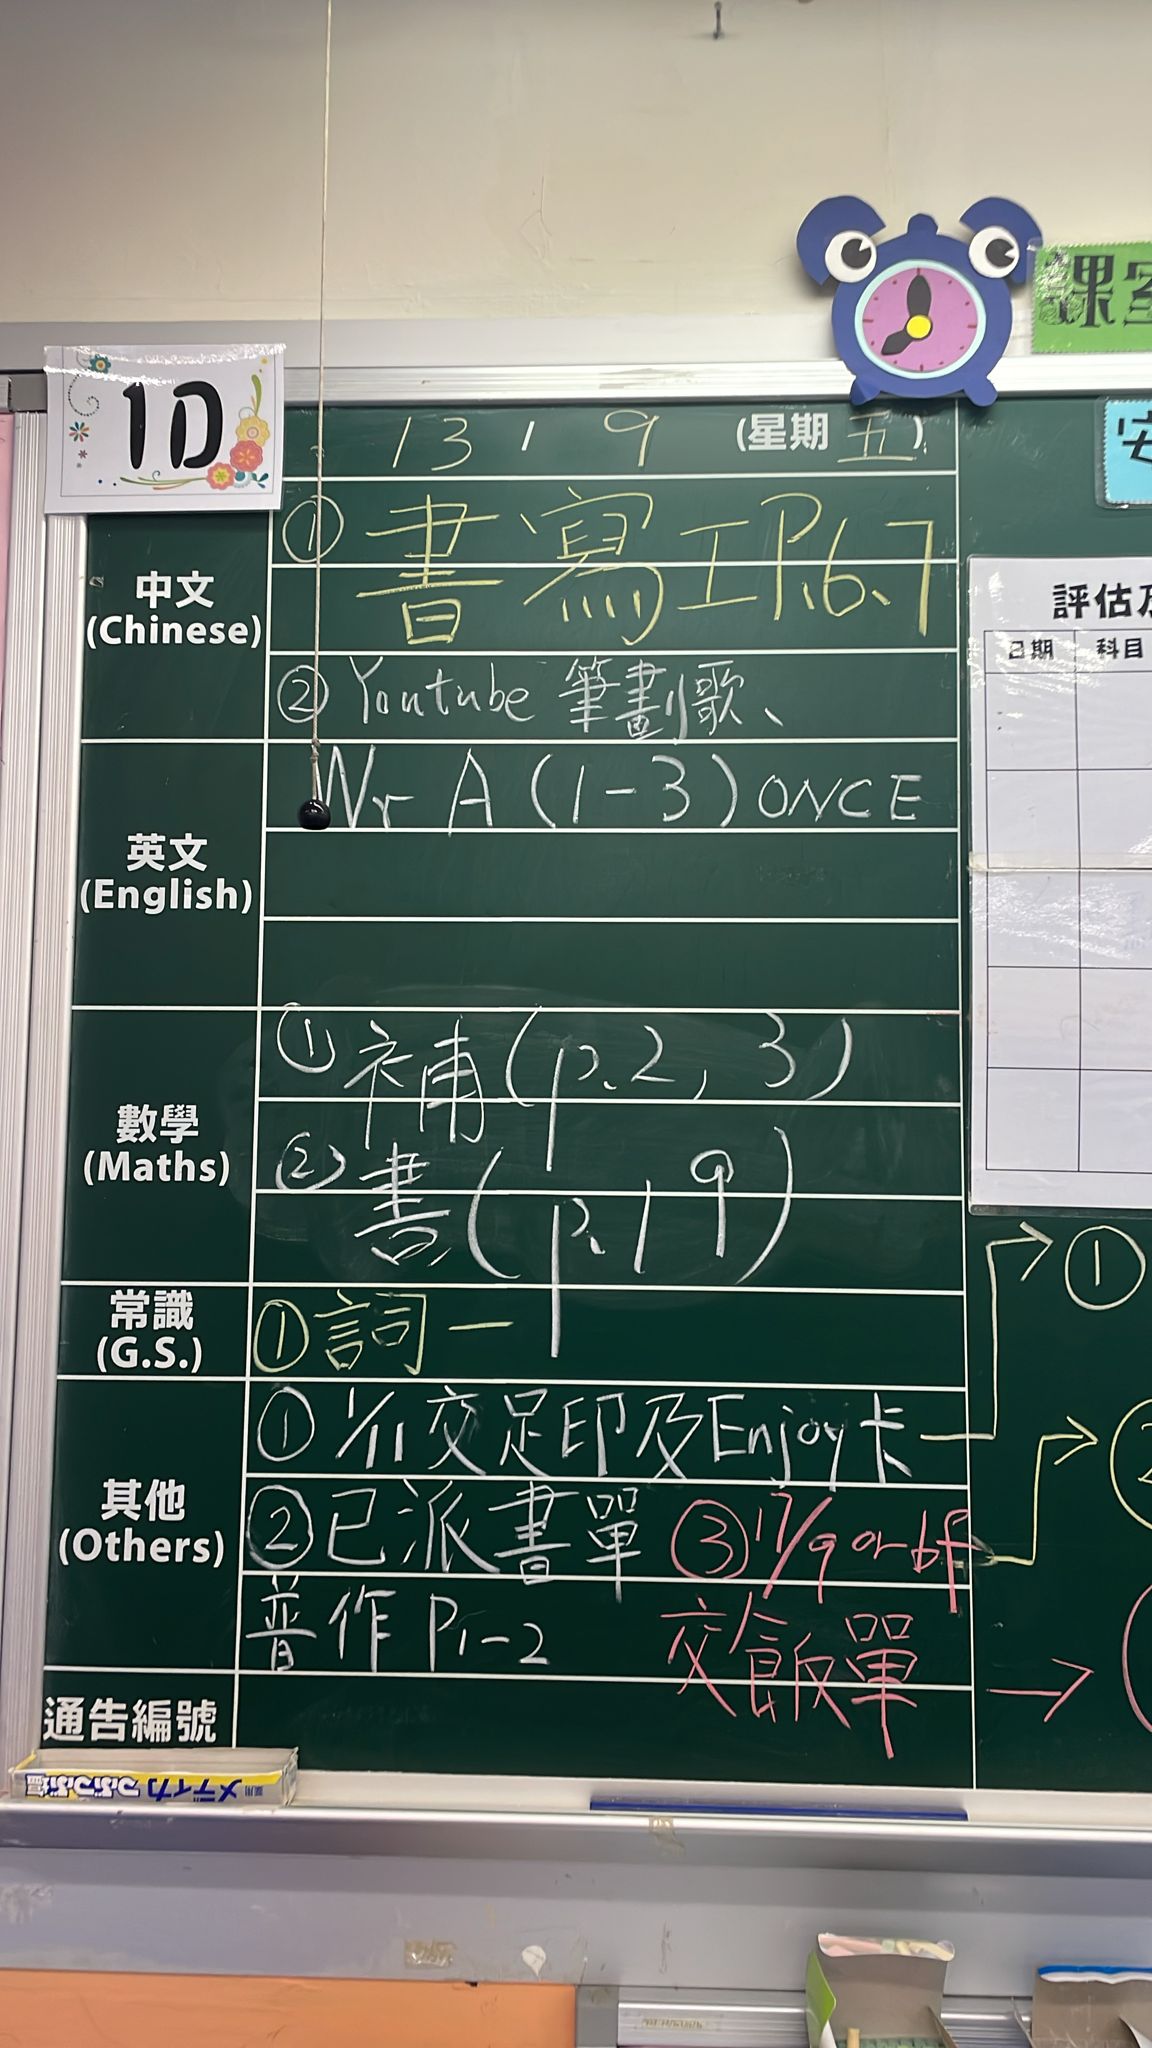 課室
1D
13 / 9 (星期 五)
安
中文
(Chinese)
① 書寫工P.6、7
② Youtube 筆劃歌、
英文
(English)
Wr A (1-3) ONCE
數學
(Maths)
① 補 (p.2, 3)
② 書 (p.19)
常識
(G.S.)
① 詞一
其他
(Others)
① 1/11 交足印及Enjoy卡
② 已派書單 ③ 17/9 or bf
普作 P1-2 交飯單
通告編號
評估及
日期 科目
①
②
メディカ つぶつぶ塩